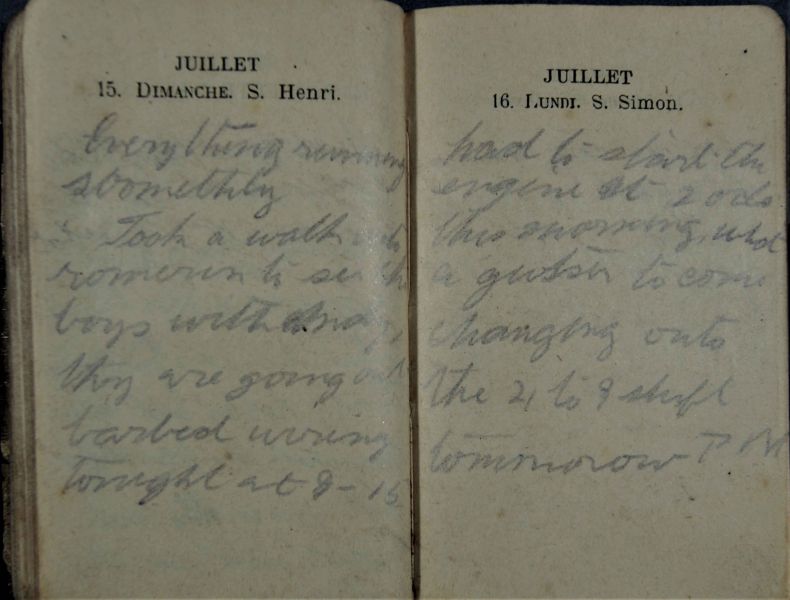 JUILLET
15. DIMANCHE. S. Henri.
Everything running
smoethly
Took a walk into
romerin to see th
boys with Andy,
they are going out
barbed wiring
tonight at 8-15
JUILLET
16. LUNDI. S. Simon.
had to start the
engine at 2 o
this morning,
a to come
changing onto
the 2, to 9 shift
tommorow P M